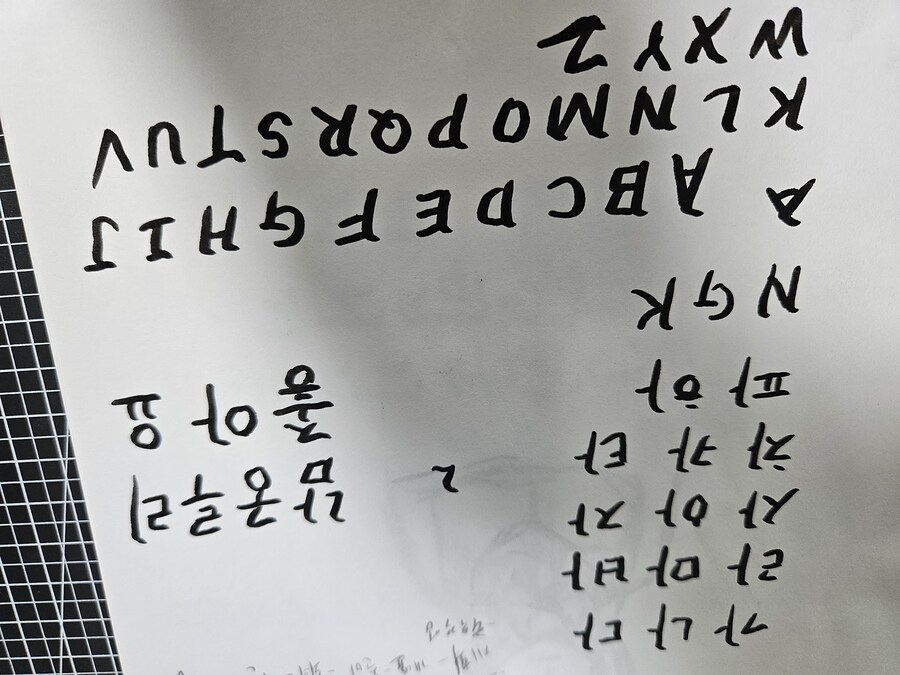 가 나 다
라 마 바
사 아 자
차 카 타
파 하
2
남궁루리
좋아요
N G K
A
A B C D E F G H I J
K L N M O P Q R S T U V
W X Y Z